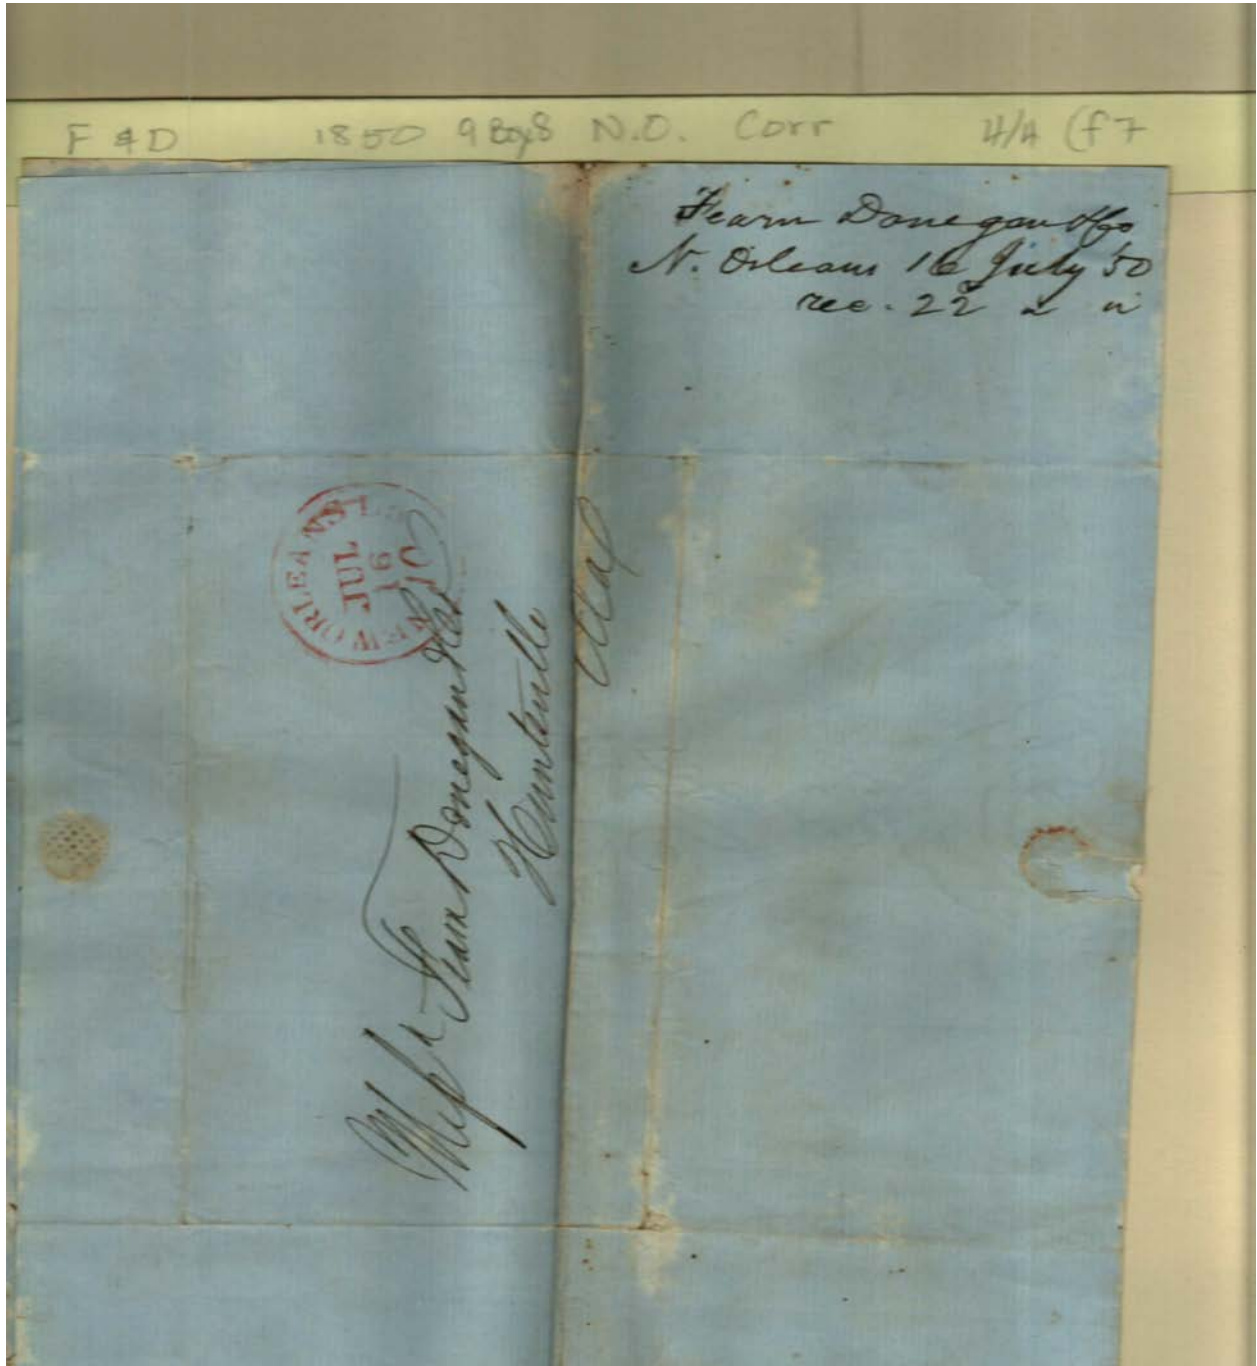 F & D 1850 9 Boys N.O. Corr 4/4 (f7
Fearn Donegan & Co
N. Orleans 16 July 50
rec. 22 " "
NEW ORLEANS La
JUL
16
10
Messrs Fearn Donegan & Co
Huntsville
Ala